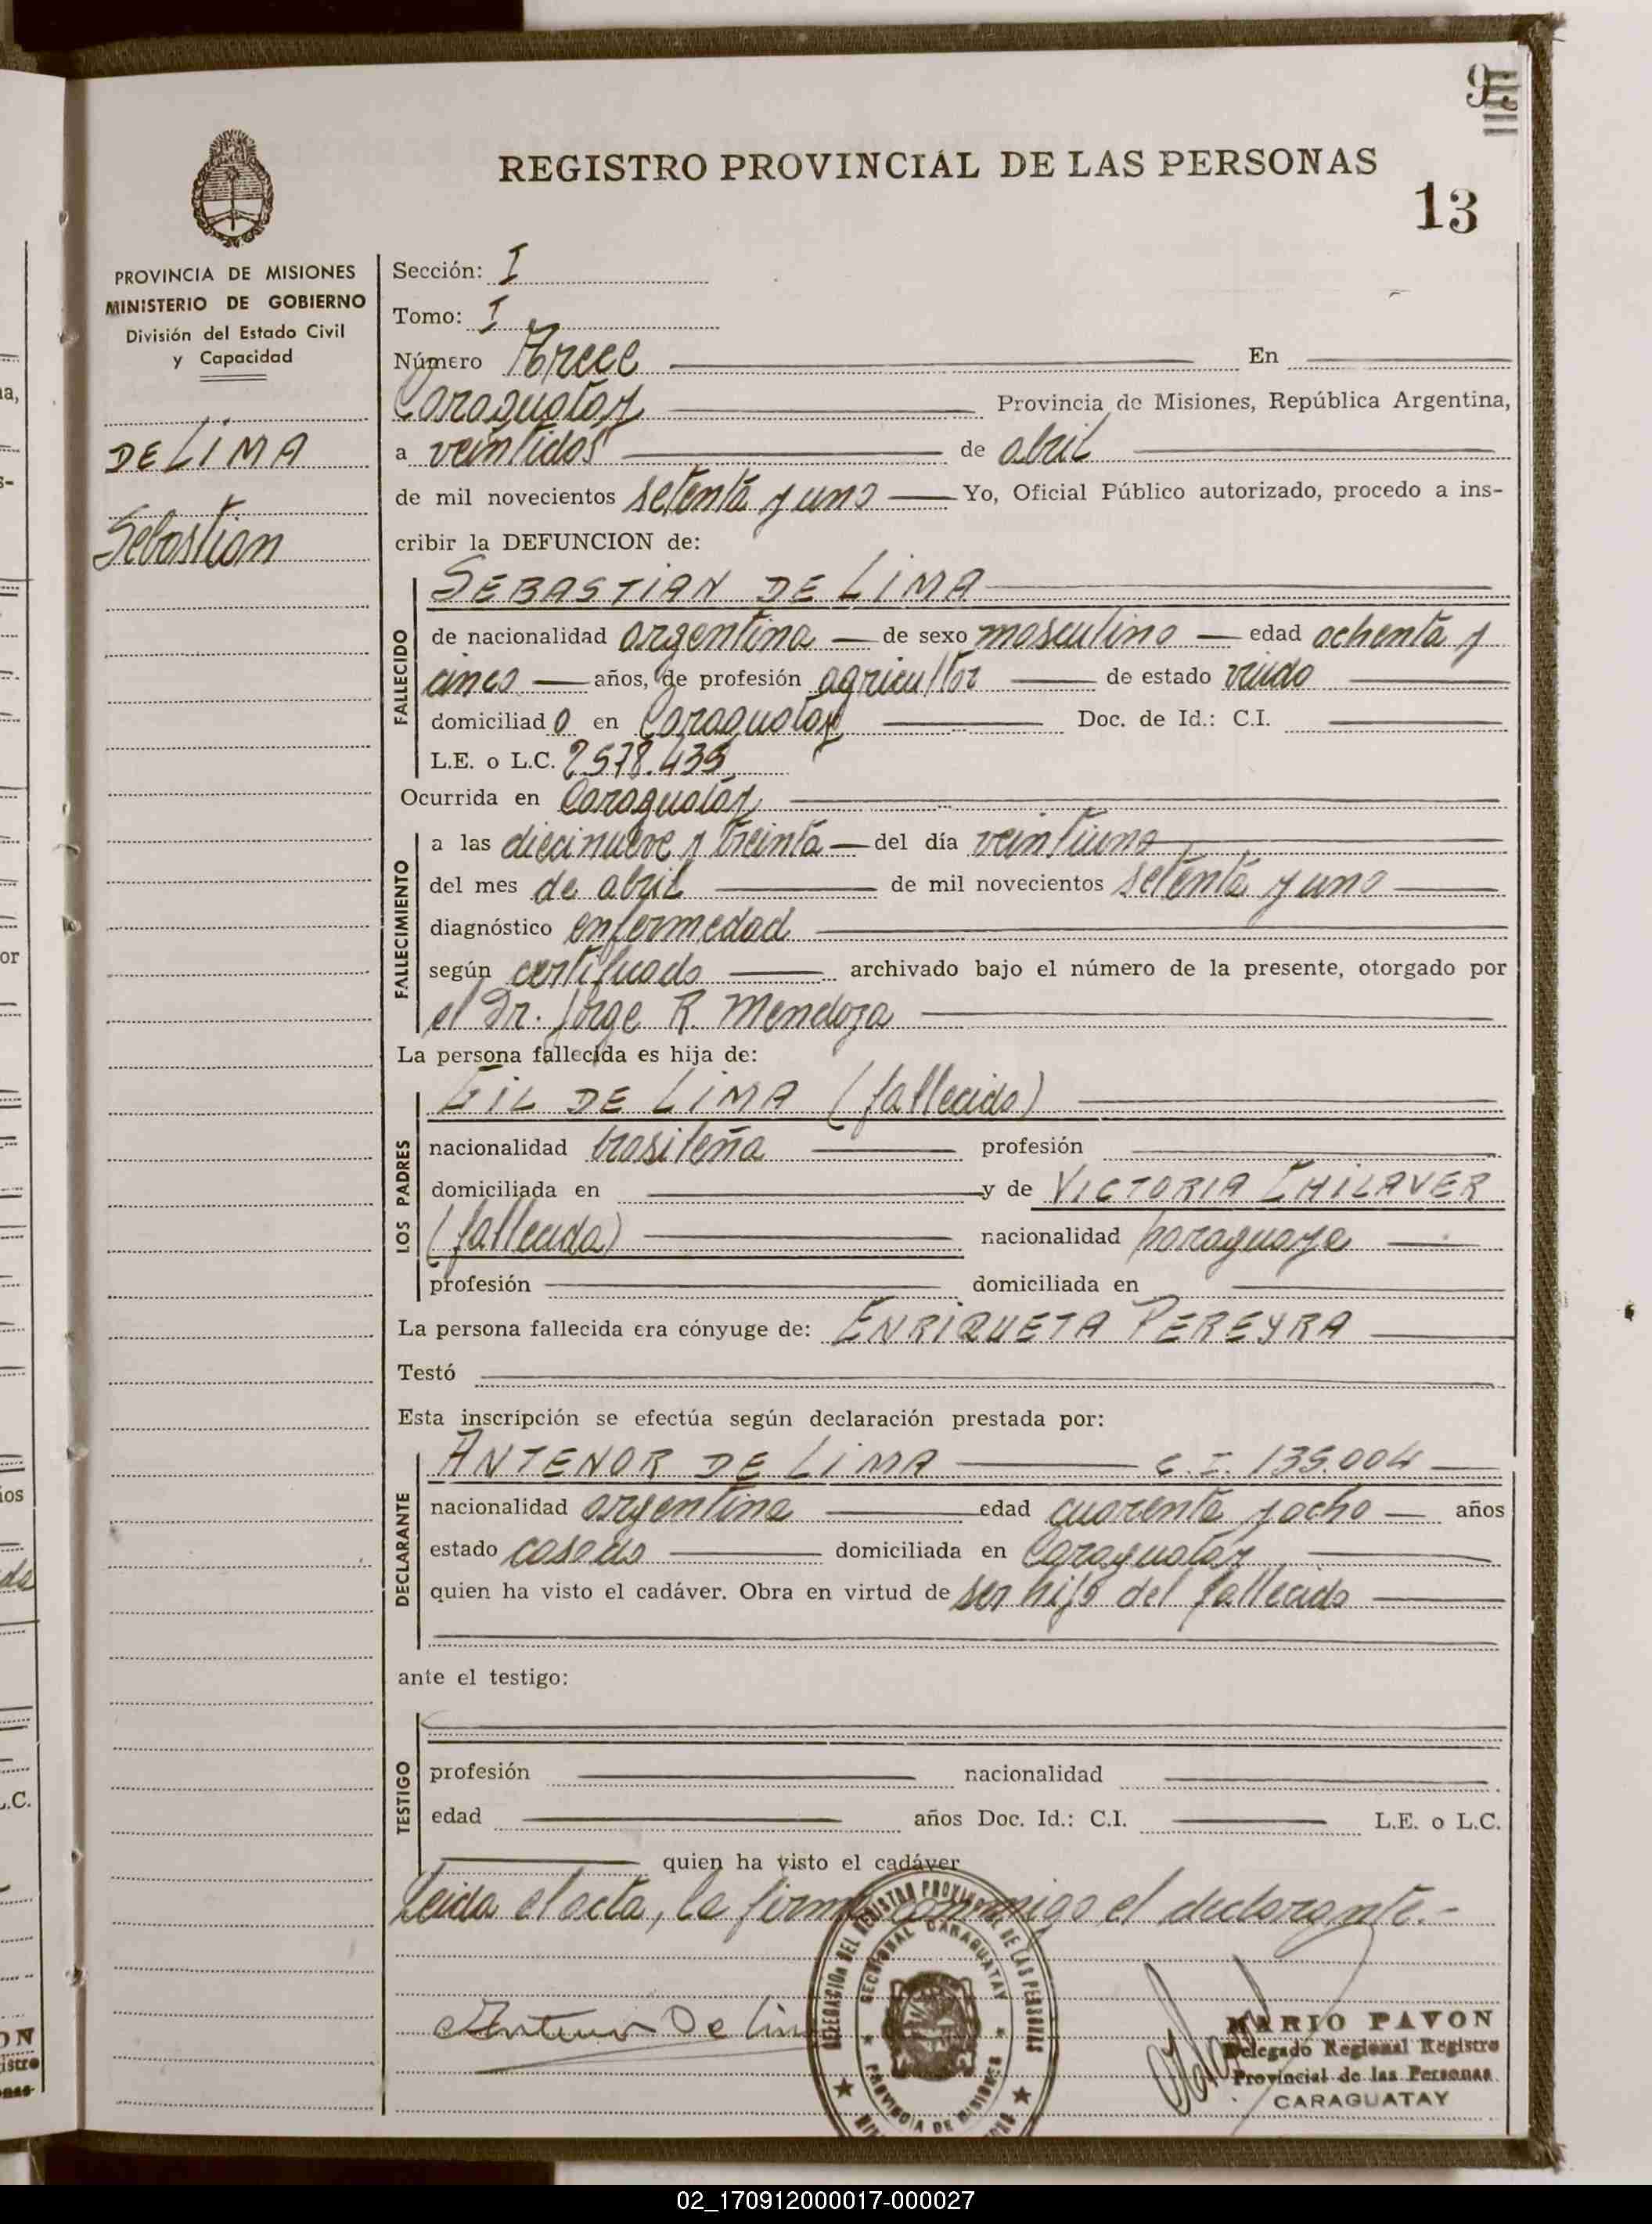 9
REGISTRO PROVINCIAL DE LAS PERSONAS
13
PROVINCIA DE MISIONES
MINISTERIO DE GOBIERNO
División del Estado Civil
y Capacidad
DE LIMA
Sebastian
Sección: I
Tomo: I
Número Trece En
Caraguatay Provincia de Misiones, República Argentina,
a veintidos de abril
de mil novecientos setenta y uno Yo, Oficial Público autorizado, procedo a ins-
cribir la DEFUNCION de:
SEBASTIAN DE LIMA
FALLECIDO
de nacionalidad argentina de sexo masculino edad ochenta y
cinco años, de profesión agricultor de estado viudo
domiciliado en Caraguatay Doc. de Id.: C.I.
L.E. o L.C. 2578.435
Ocurrida en Caraguatay
FALLECIMIENTO
a las diecinueve y treinta del día veintiuno
del mes de abril de mil novecientos setenta y uno
diagnóstico enfermedad
según certificado archivado bajo el número de la presente, otorgado por
el Dr. Jorge R. Mendoza
La persona fallecida es hija de:
LOS PADRES
GIL DE LIMA (fallecido)
nacionalidad brasileña profesión
domiciliada en y de VICTORIA CHILAVER
(fallecida) nacionalidad paraguaya
profesión domiciliada en
La persona fallecida era cónyuge de: ENRIQUETA PEREYRA
Testó
Esta inscripción se efectúa según declaración prestada por:
DECLARANTE
ANTENOR DE LIMA C.I. 135.004
nacionalidad argentina edad cuarenta y ocho años
estado casado domiciliada en Caraguatay
quien ha visto el cadáver. Obra en virtud de ser hijo del fallecido
ante el testigo:
TESTIGO
profesión nacionalidad
edad años Doc. Id.: C.I. L.E. o L.C.
quien ha visto el cadáver
Leida el acta, la firma conmigo el declarante.-
Antenor De Lima
DELEGACION DEL REGISTRO PROVINCIAL DE LAS PERSONAS
SECCIONAL CARAGUATAY
PROVINCIA DE MISIONES
MARIO PAVON
Delegado Regional Registro
Provincial de las Personas
CARAGUATAY
02_170912000017-000027